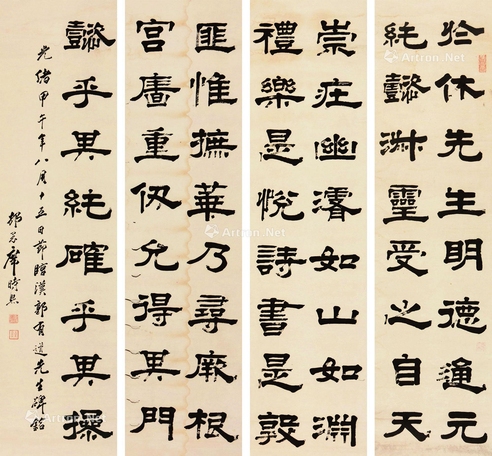 於休先生明德通元
純懿淑靈受之自天
崇壯幽濬如山如淵
禮樂是悅詩書是敦
匪惟摭華乃尋厥根
宮牆重仞允得其門
懿乎其純確乎其操
光緒甲午年八月十五日節臨漢郭有道先生碑銘
Artron.Net